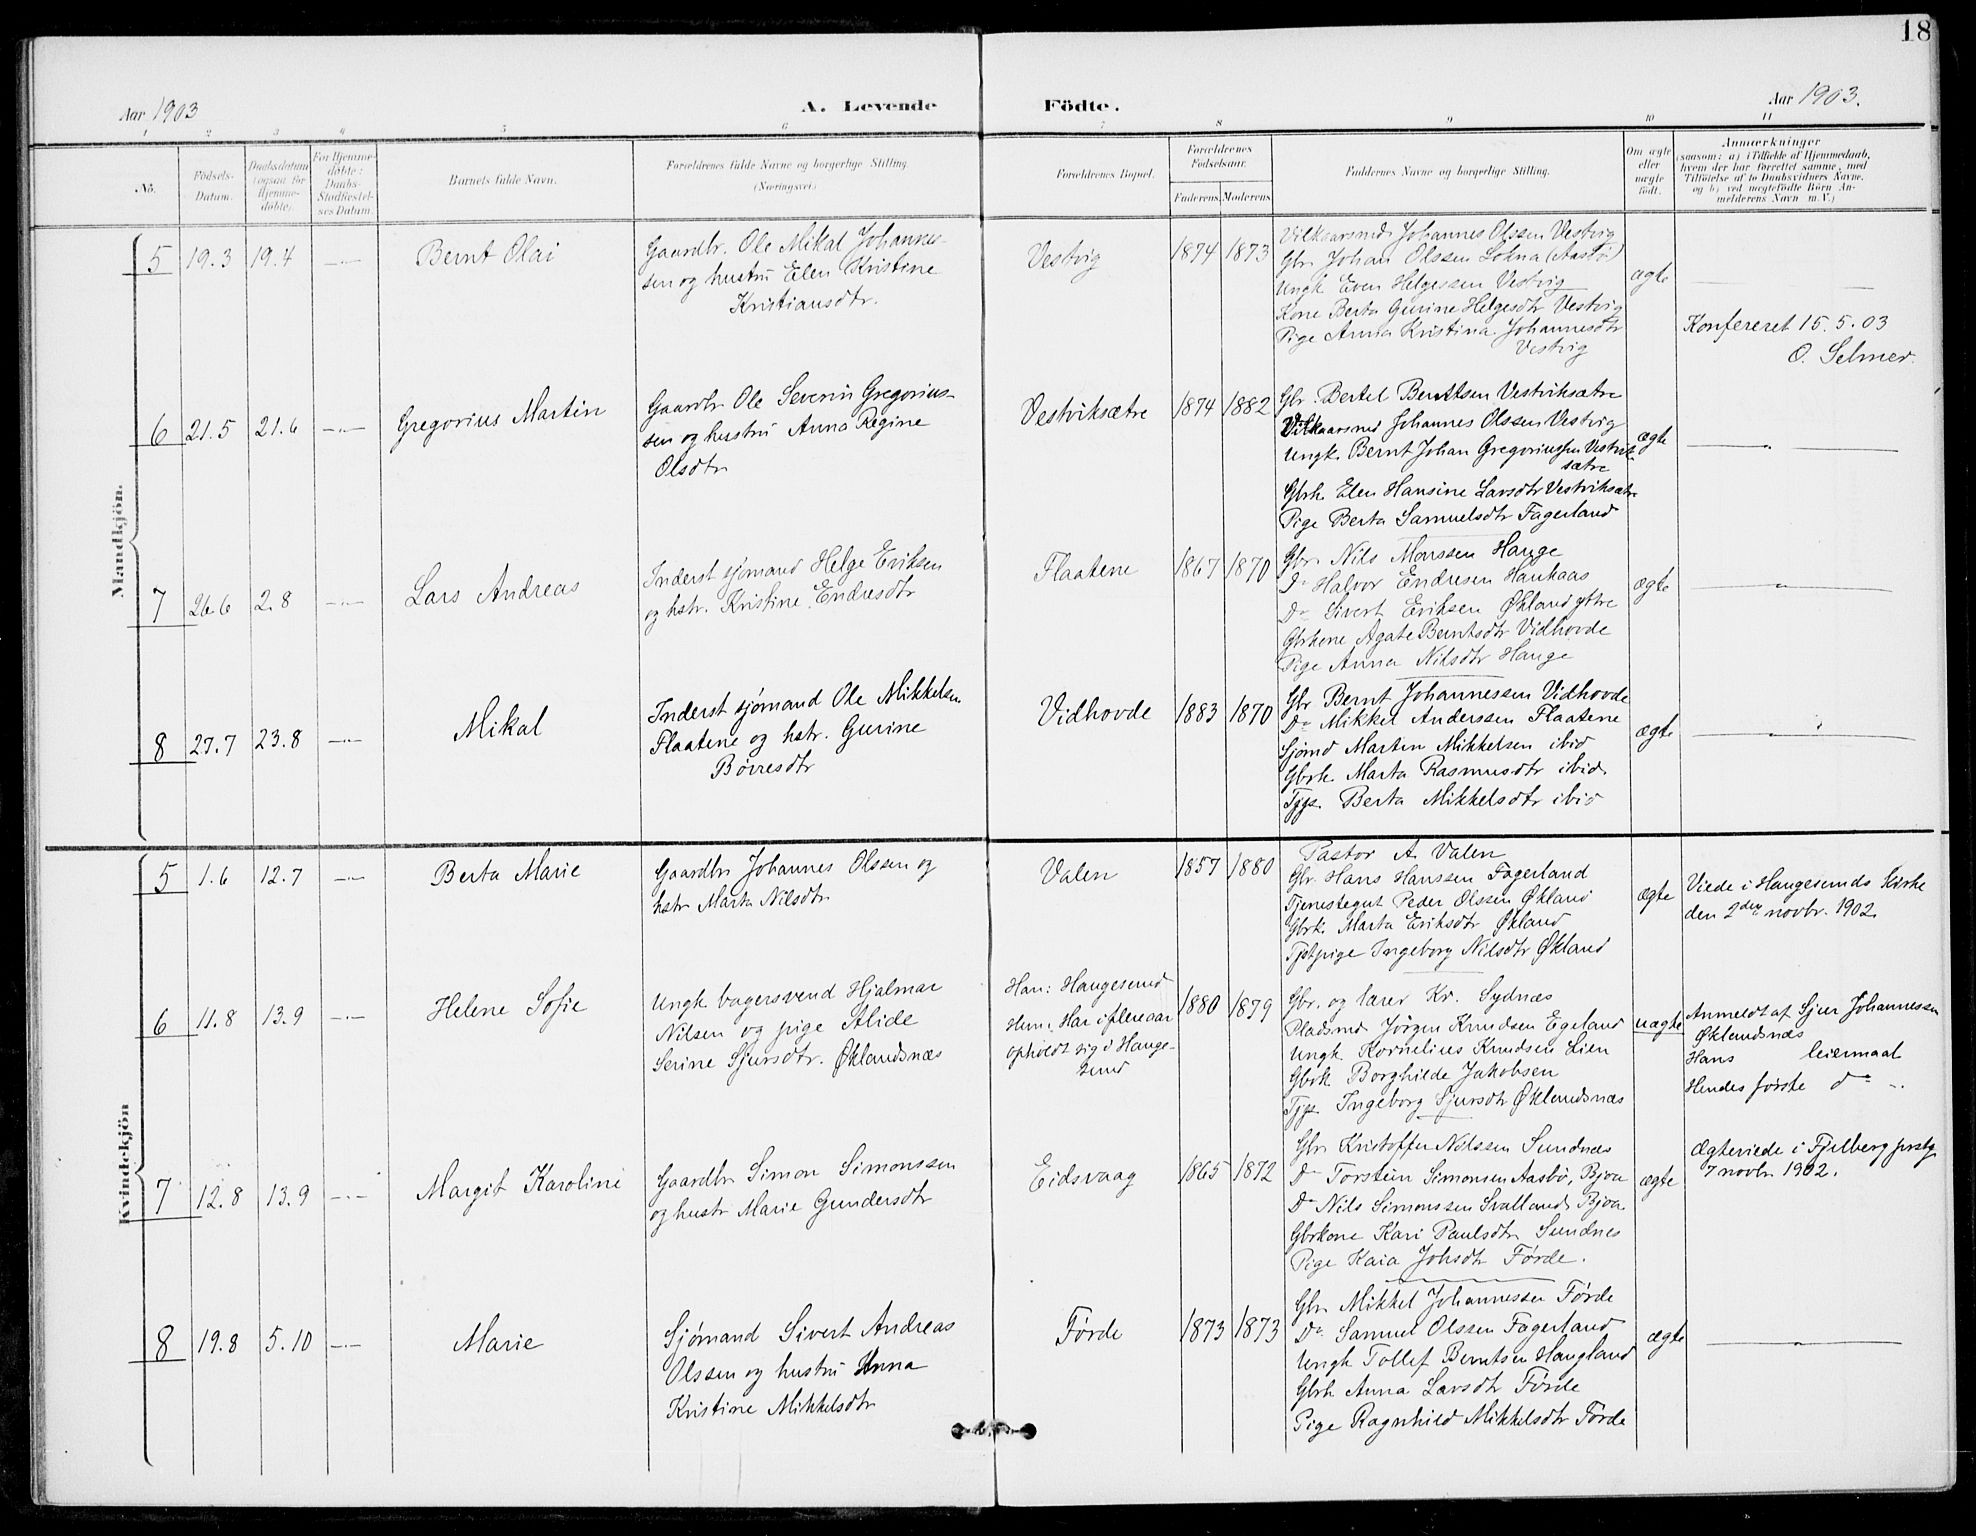 18
Aar 1903
A. Levende
Födte.
Aar 1903.
1 2 3 4 5 6 7 8 9 10 11
No.
Födsels-
Datum.
Daabsdatum
(ogsaa for
Hjemme-
döbte).
For Hjemme-
döbte:
Daabs-
Stadfæstel-
ses Datum.
Barnets fulde Navn.
Forældrenes fulde Navne og borgerlige Stilling.
(Næringsvei)
Forældrenes Bopæl.
Forældrenes
Födselsaar.
Faderens.
Moderens.
Faddernes Navne og borgerlige Stilling.
Om ægte
eller
uægte
födt.
Anmærkninger
(saasom: a) i Tilfælde af Hjemmedaab,
hvem der har forrettet samme, med
Tilföielse af to Daabsvidners Navne,
og b) ved uægtefödte Börn An-
melderens Navn m. V.)
Mandkjön.
5
19.3
19.4
Bernt Olai
Gaardbr. Ole Mikal Johannes-
sen og hustru Elen Kristine
Kristiansdtr.
Vestvig
1874
1873
Vilkaarsmd. Johannes Olssen Vestvig
Gbr. Johan Olssen Lokna (Aasbø)
Ungk. Even Helgessen Vestvig
Kone Berta Gurine Helgesdtr Vestvig
Pige Anna Kristina Johannesdtr
Vestvig
ægte
Konfereret 15.5.03
O. Selmer.
6
21.5
21.6
Gregorius Martin
Gaardbr Ole Severin Gregorius-
sen og hustru Anna Regine
Olsdtr
Vestviksætre
1874
1882
Gbr. Bertel Berntsen Vestviksætre
Vilkaarsmd Johannes Olssen Vestvig
Ungk. Bernt Johan Gregoriussen Vestvik-
sætre
Gbrk. Elen Hansine Larsdtr Vestviksætre
Pige Berta Samuelsdtr Fagerland
ægte
7
26.6
2.8
Lars Andreas
Inderst sjømand Helge Eriksen
og hstr. Kristine Endresdtr
Flaatene
1867
1870
Gbr. Nils Monssen Hauge
Do Halvor Endresen Haukaas
Do Sivert Eriksen Økland ytre
Gbrkone Agate Berntsdtr Vidhovde
Pige Anna Nilsdtr Hauge
ægte
8
27.7
23.8
Mikal
Inderst sjømand Ole Mikkelsen
Flaatene og hstr. Gurine
Børresdtr
Vidhovde
1883
1870
Gbr Bernt Johannessen Vidhovde
Do Mikkel Anderssen Flaatene
Sjømd Martin Mikkelsen ibid
Gbrk. Marta Rasmusdtr ibid.
Tjpg. Berta Mikkelsdtr ibid
ægte
Kvindekjön
5
1.6
12.7
Berta Marie
Gaardbr Johannes Olssen og
hstr Marta Nilsdtr
Valen
1857
1880
Pastor A. Valen
Gbr. Hans Hanssen Fagerland
Tjenestegut Peder Olssen Økland
Gbrk. Marta Eriksdtr Økland
Tjstpige Ingeborg Nilsdtr Økland
ægte
Viede i Haugesunds Kirke
den 2den novbr. 1902.
6
11.8
13.9
Helene Sofie
Ungk bagersvend Hjalmar
Nilsen og pige Alide
Serine Sjursdtr. Øklandsnæs
Han: Haugesund
Hun: Har i flere aar
opholdt sig i Hauge-
sund
1880
1879
Gbr. og lærer Kr. Sydnæs
Pladsmd Jørgen Knudsen Egeland
Ungk. Kornelius Knudsen Lien
Gbrk Borghilde Jakobsen
Tjpg. Ingeborg Sjursdtr Øklandsnæs
uægte
Anmeldt af Sjur Johannessen
Øklandsnæs
Hans leiermaal
Hendes første do
7
12.8
13.9
Margit Karoline
Gaardbr Simon Simonssen
og hustr Marie Gundersdtr
Eidsvaag
1865
1872
Gbr Kristoffer Nilssen Sundnæs
Do Torstein Simonsen Aasbø, Bjoa
Do Nils Simonssen Svalland, Bjoa
Gbrkone Kari Paulsdtr Sundnes
Pige Kaia Johsdtr Førde.
ægte
Ægteviede i Fjelberg prstg
7 novbr. 1902.
8
19.8
5.10
Marie
Sjømand Sivert Andreas
Olssen og hustru Anna
Kristine Mikkelsdtr
Førde
1873
1873
Gbr. Mikkel Johannessen Førde
Do Samuel Olssen Fagerland
Ungk Tollef Berntsen Haugland
Gbrk Anna Larsdtr Førde
Pige Ragnhild Mikkelsdtr Førde
ægte